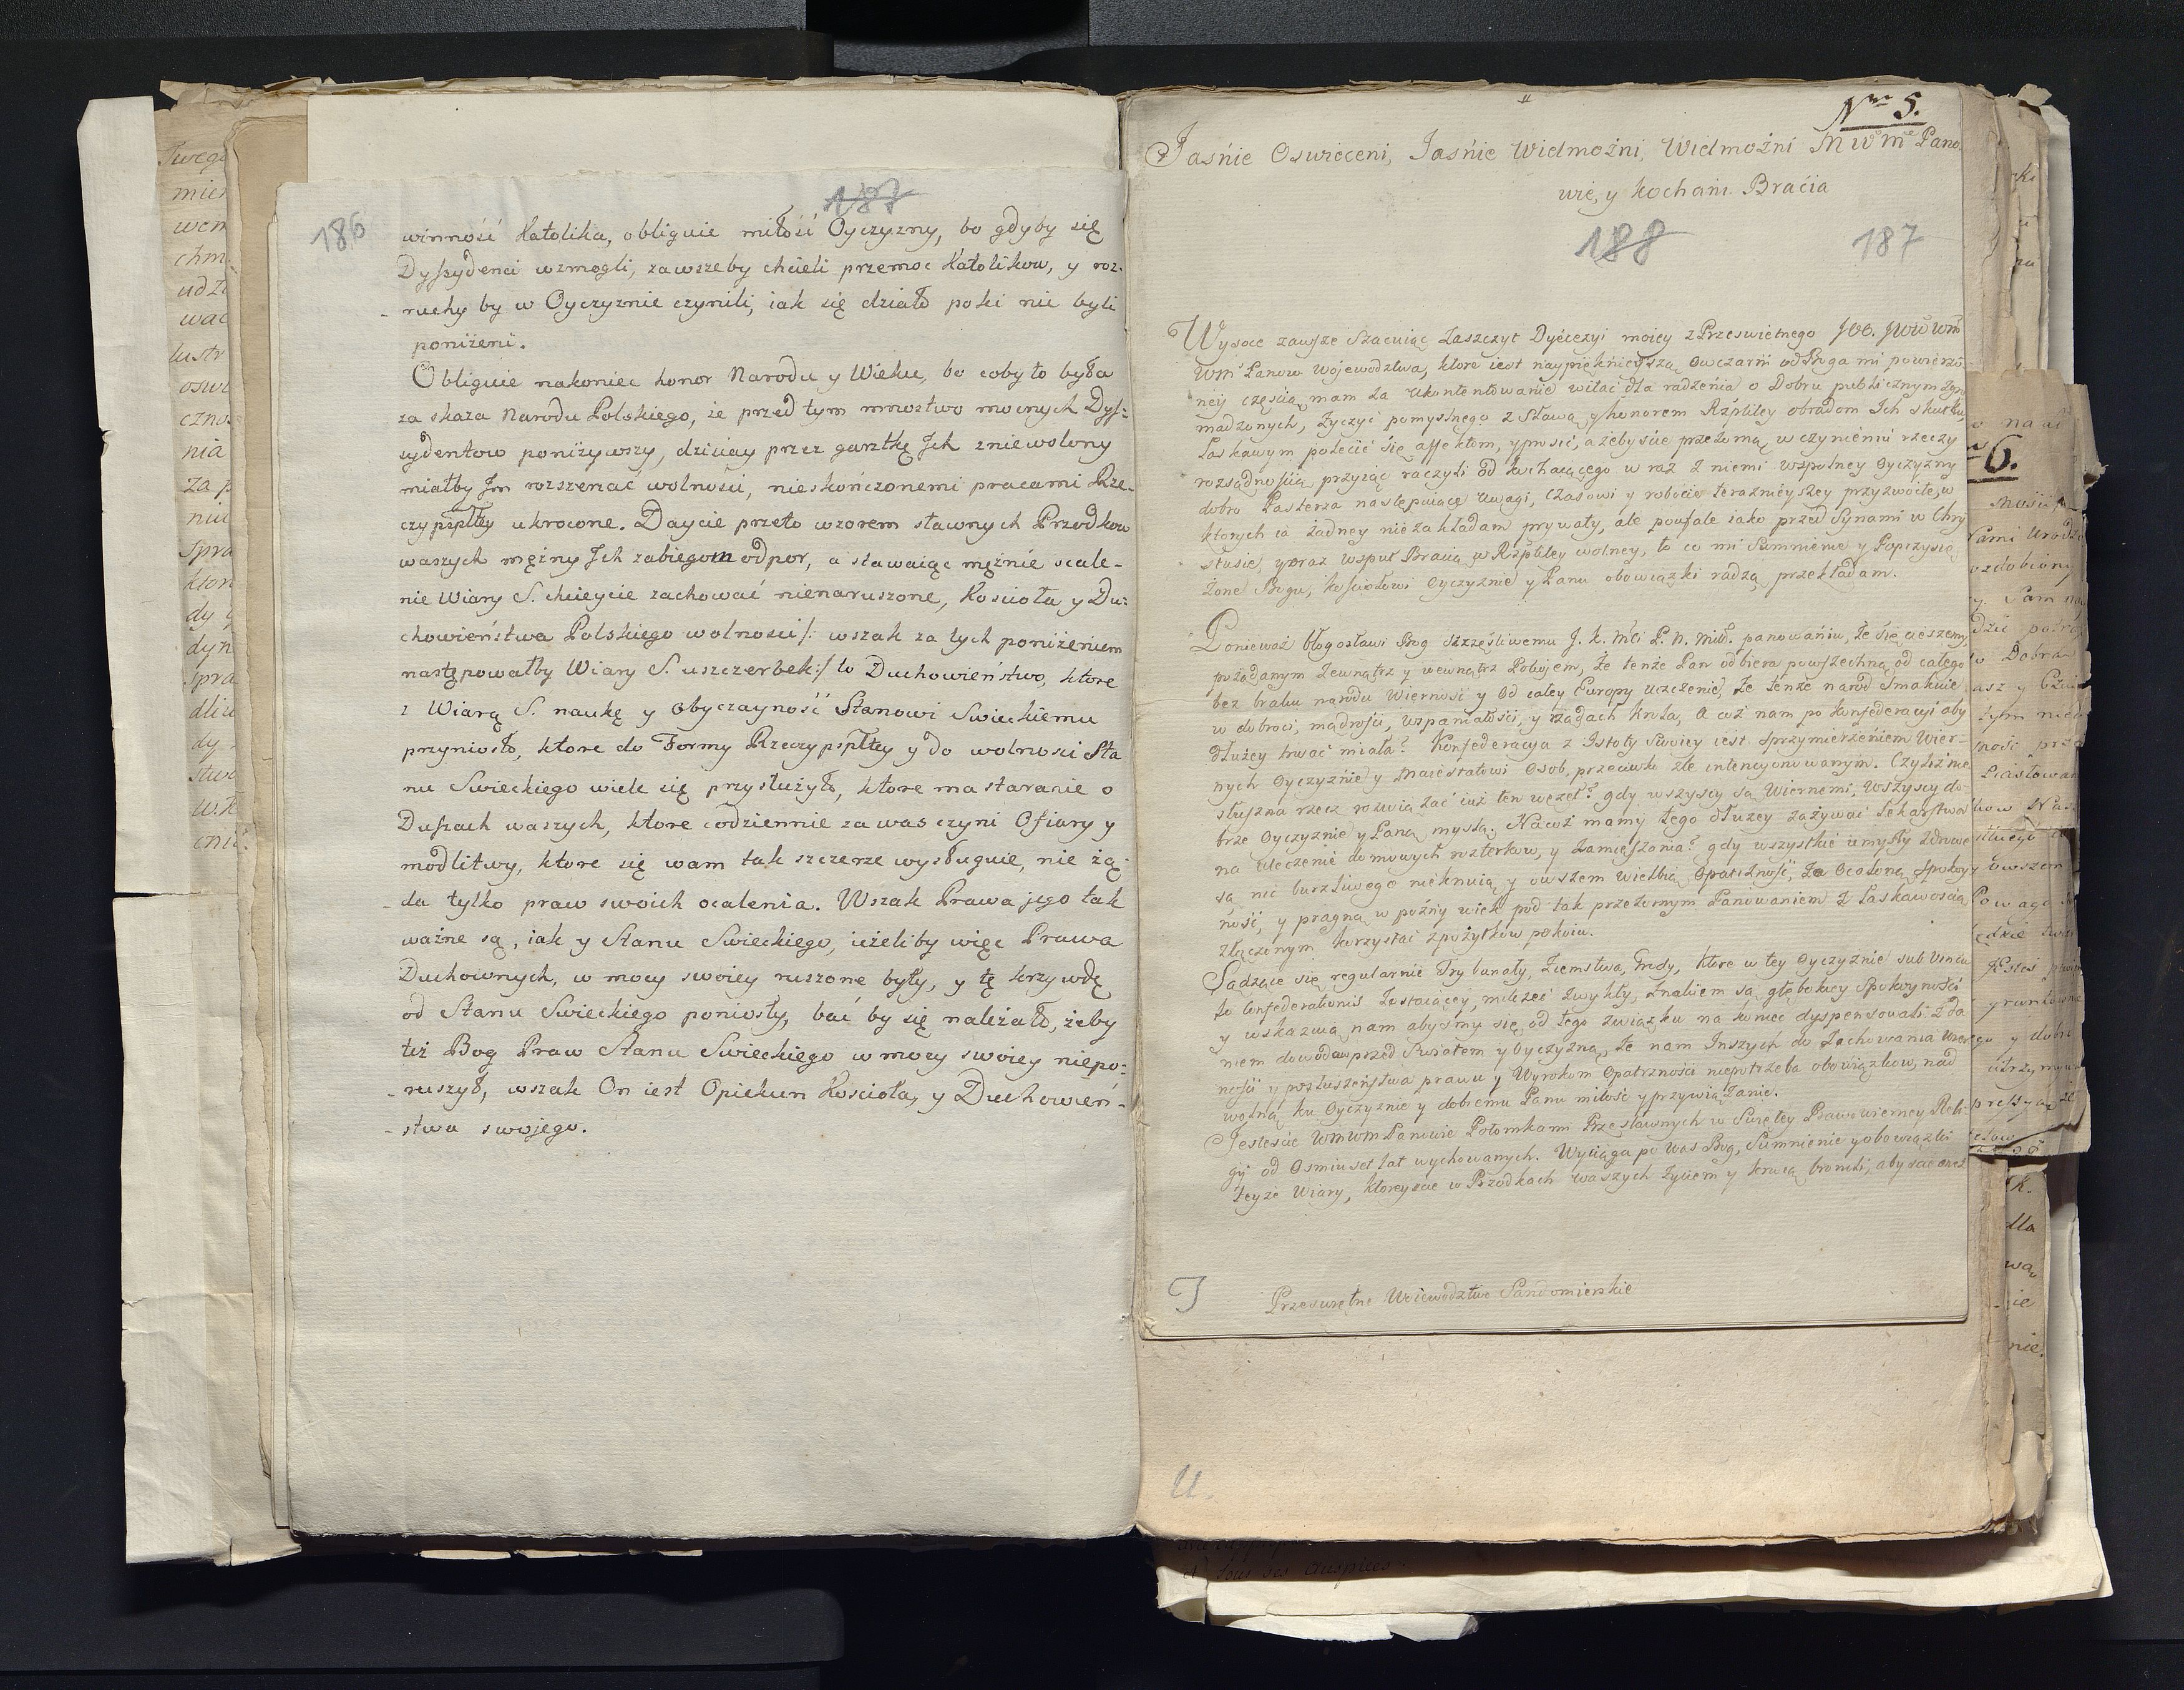 187
186
winność Katolika, obliguie miłość Oyczyzny, bo gdyby się
Dyssydenci wzmogli, zawszeby chcieli przemoc Katolikow, y roz-
ruchy by w Oyczyznie czynili, iak się działo poki nie byli
poniżeni.
Obliguie nakoniec honor Narodu y Wieku, bo coby to była
za skaza Narodu Polskiego, że przed tym mnostwo mocnych Dys:
sydentow poniżywszy, dzisiay przez garztkę Ich zniewolony
miałby Im rozszerzać wolnosci, nieskończonemi pracami Rze-
czypspltey ukrocone. Daycie przeto wzorem sławnych Przodkow
waszych mężny Ich zabiegom odpor, a stawaiąc mężnie ocale-
nie Wiary S. chcieycie zachować nienaruszone, Koscioła y Du:
chowieństwa Polskiego wolnosci/: wszak za tych poniżeniem
następowałby Wiary S. uszczerbek:/ to Duchowieństwo, ktore
z Wiarą S. naukę y obyczayność Stanowi Swieckiemu
przyniosło, ktore do Formy Rzeczypspltey y do wolnosci Sta
nu Swieckiego wiele się przysłużyło, ktore ma staranie o
Duszach waszych, ktore codziennie za was czyni Ofiary y
modlitwy, ktore się wam tak szczerze wysługuie, nie żą:
da tylko praw swoich ocalenia. Wszak Prawa jego tak
ważne są, iak y Stanu Swieckiego, ieżeliby więc Prawa
Duchownych, w mocy swoiey ruszone były, y tę krzywdę
od Stanu Swieckiego poniosły, bać by się należało, żeby
też Bog Praw Stanu Swieckiego w mocy swoiey niepo:
ruszył, wszak On iest Opiekun Koscioła, y Duchowień-
stwa swojego.
Nro 5.
Jaśnie Oswieceni, Jaśnie Wielmożni, Wielmożni MWM Pano
wie, y kochani Braćia
188
187
Wysoce zawsze Szacuiąc Zaszczyt Dyecezyi moiey z Przeswietnego JOO. JWW WM
WM Panow Wojewodztwa, ktore iest naypięknieyszą owczarni od Boga mi powierzo
ney częscią, mam za ukontentowanie witać dla radzenia o Dobru publicznym Zgro
madzonych, życzyć pomyslnego z Sławą y honorem Rzpltey obradom Ich skutku,
Łaskawym polecić się affektom, y prosić, ażebyscie przezorną w czynieniu rzeczy
rozsądnoscią przyiąć raczyli od kochaiącego w raz z niemi wspolney Oyczyzny
dobro Pasterza następuiące uwagi, czasowi y robocie teraznieyszey przyzwoite, w
ktorych ia żadney nie zakładam prywaty, ale poufale iako przed Synami w Chry
stusie, y oraz wspuł Bracią w Rzpltey wolney, to co mi Sumnienie y Poprzysię
żone Bogu, kosciołowi Oyczyznie y Panu obowiązki radzą, przekładam.
Ponieważ błogosławi Bog szczęśliwemu J. K. Mci P. N. Miłł. panowaniu, że się cieszemy
pożądanym zewnątrz y wewnątrz Pokojem, że tenże Pan odbiera powszechną od całego
bez braku narodu Wierność y od całey Europy uczczenie, że tenże narod smakuie
w dobroci, mądrosci, wspaniałosci, y rządach krola, A coż nam po konfederacyi aby
dłużey trwać miała? Konfederacya z Istoty swoiey iest sprzymierzeniem Wier-
nych Oyczyznie y Maiestatowi Osob, przeciwko zle intencyonowanym. Czyliż nie
słuszna rzecz rozwiązać iuż ten węzeł? gdy wszyscy są Wiernemi, Wszyscy do-
brze Oyczyznie y Panu myslą. Nacoż mamy tego dłużey zażywać lekarstwa
na uleczenie domowych rozterkow, y zamięszania? gdy wszystkie umysły zdrowe
są nic burzliwego nieknuią y owszem wielbią Opatrzność, za Ocaloną spokoy
ność, y pragną w pozny wiek pod tak przezornym Panowaniem z Łaskawoscią
złączonym korzystać z pożytkow pokoiu.
Sądzące się regularnie Trybunały, Ziemstwa, Grody, ktore w tey Oyczyznie sub Vincu
lo Confederationis Zostaiącey, milczeć zwykły, znakiem są głębokiey Spokoyności
y wskazuią nam abysmy się od tego związku na koniec dyspensowali z da
niem dowodow przed Swiatem y Oyczyzną, że nam Inszych do Zachowania Wier
nosci y posłuszeństwa prawu y Wyrokom Opatrzności niepotrzeba obowiązkow, nad
wolną ku Oyczyznie y dobremu Panu miłość y przywiązanie.
Jestescie WMWM Panowie Potomkami Przesławnych w Swiętey Prawowierney Reli-
gij od Osmiuset lat wychowanych. Wyciąga po Was Bog, Sumnienie y obowiązki
teyże Wiary, ktoreyscie w Przodkach waszych życiem y krwią bronili, abyscie onez
J
Przeswiętne Woiewodztwo Sandomierskie
U.
6.